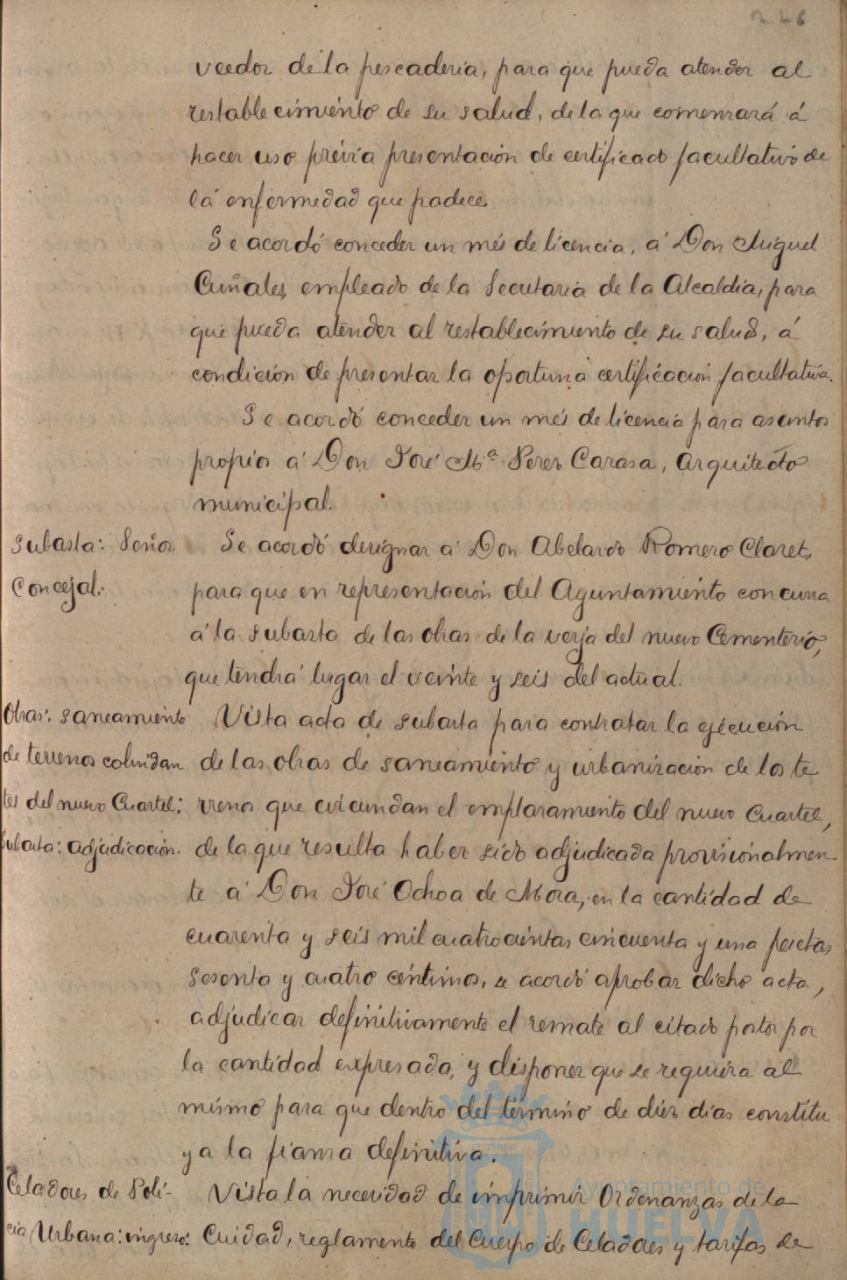 226
veedor de la pescaderia, para que pueda atender al
restablecimiento de su salud, de la que comenzará á
hacer uso prévia presentación de certificado facultativo de
la enfermedad que padece.
Se acordó conceder un més de licencia, a Don Miguel
Cuñales, empleado de la Secretaria de la Alcaldia, para
que pueda atender al restablecimiento de su salud, á
condición de presentar la oportuna certificación facultativa.
Se acordó conceder un més de licencia para asuntos
propios a Don José Mª Perez Carasa, Arquitecto
municipal.
Subasta: Señor
Concejal.
Se acordó designar a Don Abelardo Romero Claret,
para que en representación del Ayuntamiento concurra
á la subasta de las obras de la verja del nuevo Cementerio,
que tendrá lugar el veinte y seis del actual.
Obras: saneamiento
de terrenos colindan
tes del nuevo Cuartel:
Subasta: adjudicación.
Vista acta de subasta para contratar la ejecución
de las obras de saneamiento y urbanización de los te
rrenos que circundan el emplazamiento del nuevo Cuartel,
de la que resulta haber sido adjudicada provisionalmen-
te a Don José Ochoa de Mora, en la cantidad de
cuarenta y seis mil cuatrocientas cincuenta y una pesetas
sesenta y cuatro céntimos, se acordó aprobar dicho acta,
adjudicar definitivamente el remate al citado postor por
la cantidad expresada, y disponer que se requiera al
mismo para que dentro del término de diez dias constitu
ya la fianza definitiva.
Celadores de Poli-
cia Urbana: ingreso:
Vista la necesidad de imprimir Ordenanzas de la
Cuidad, reglamento del Cuerpo de Celadores y tarifas de
Ayuntamiento de
HUELVA